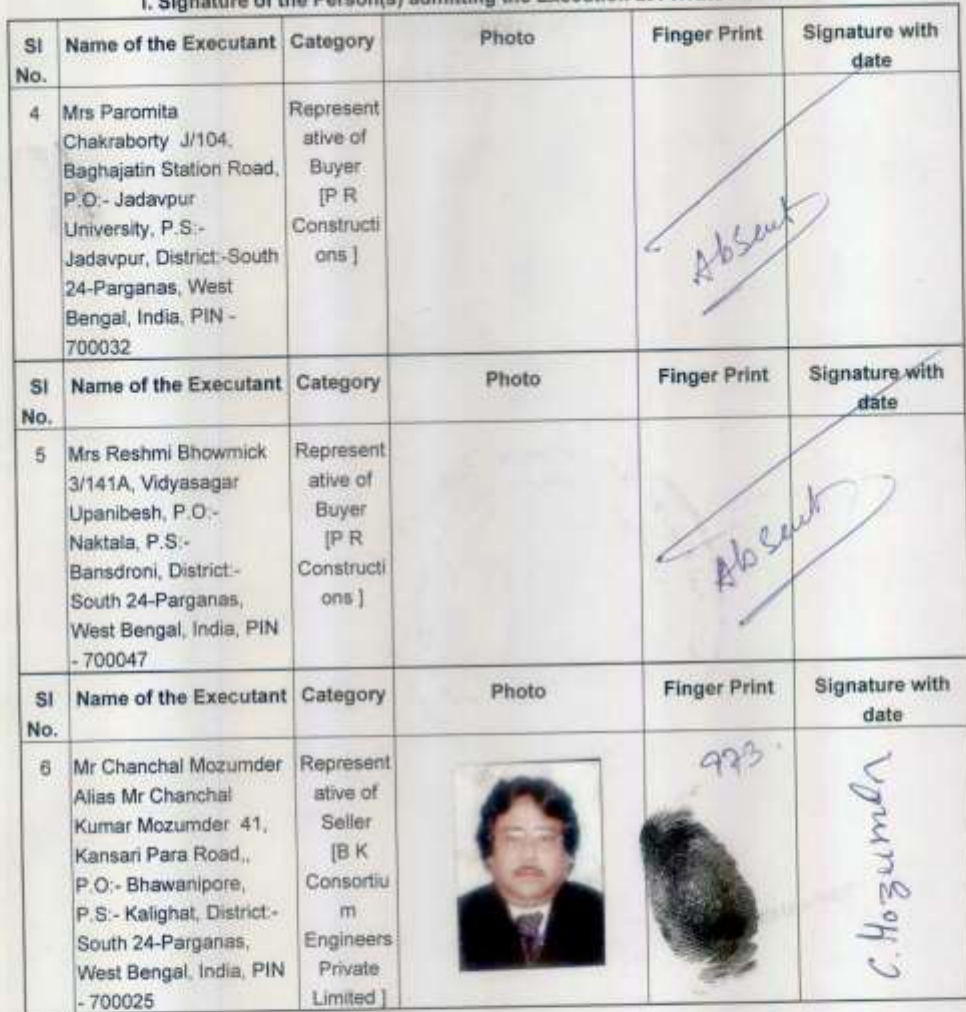 I. Signature of the Person(s) admitting the Execution
Sl No. Name of the Executant Category Photo Finger Print Signature with date
4
Mrs Paromita
Chakraborty J/104,
Baghajatin Station Road,
P.O:- Jadavpur
University, P.S:-
Jadavpur, District:-South
24-Parganas, West
Bengal, India, PIN -
700032
Represent
ative of
Buyer
[P R
Constructi
ons ]
Absent
Sl No. Name of the Executant Category Photo Finger Print Signature with date
5
Mrs Reshmi Bhowmick
3/141A, Vidyasagar
Upanibesh, P.O:-
Naktala, P.S:-
Bansdroni, District:-
South 24-Parganas,
West Bengal, India, PIN
- 700047
Represent
ative of
Buyer
[P R
Constructi
ons ]
Absent
Sl No. Name of the Executant Category Photo Finger Print Signature with date
6
Mr Chanchal Mozumder
Alias Mr Chanchal
Kumar Mozumder 41,
Kansari Para Road,,
P.O:- Bhawanipore,
P.S:- Kalighat, District:-
South 24-Parganas,
West Bengal, India, PIN
- 700025
Represent
ative of
Seller
[B K
Consortiu
m
Engineers
Private
Limited ]
973.
C. Mozumder